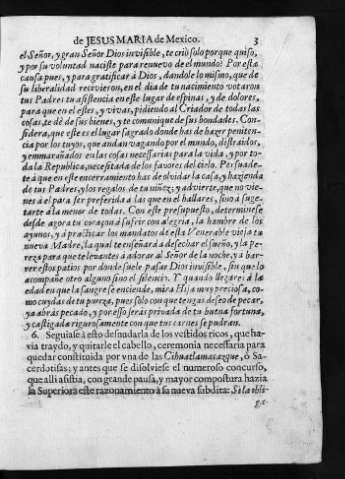 de JESUS MARIA de Mexico. 3
el Señor, y gran Señor Dios invisible, te criò solo porque quiso,
y por su voluntad naciste para renuevo de el mundo: Por esta
causa pues, y para gratificar à Dios, dandole lo mismo, que de
su liberalidad recivieron, en el dia de tu nacimiento votaron
tus Padres tu asistencia en este lugar de espinas, y de dolores,
para que en el estes, y vivas, pidiendo al Criador de todas las
cosas, te dè de sus bienes, y te comunique de sus bondades. Con-
sidera, que este es el lugar sagrado donde has de hazer peniten-
cia por los tuyos, que andan vagando por el mundo, distraidos,
y enmarañados en las cosas necessarias para la vida, y por to-
da la Republica, necesitada de los favores del cielo. Persuade-
te à que en este encerramiento has de olvidar la casa, y hazienda
de tus Padres, y los regalos de tu niñez; y advierte, que no vie-
nes à el para ser preferida à las que en el hallares, sino à suge-
tarte à la menor de todas. Con este presupuesto, determinese
desde agora tu coraçon à sufrir con alegria, la hambre de los
ayunos, y à practicar los mandatos de esta Venerable vieja tu
nueva Madre, la qual te enseñarà à desechar el sueño, y la pe-
reza para que te levantes à adorar al Señor de la noche, y à bar-
rer estos patios por donde suele pasar Dios invisible, sin que lo
acompañe otro alguno sino el silencio. Y quando llegares à la
edad en que la sangre se enciende, mira Hija muy preciosa, co-
mo cuydas de tu pureza, pues solo con que tengas deseo de pecar,
ya abràs pecado, y por esso seràs privada de tu buena fortuna,
y castigada rigurosamente con que tus carnes se pudran.
6. Seguiase à esto desnudarla de los vestidos ricos, que ha-
via traydo, y quitarle el cabello, ceremonia necessaria para
quedar constituida por vna de las Cihuatlamacazque, ò Sa-
cerdotisas; y antes que se disolviese el numeroso concurso,
que alli asistia, con grande pausa, y mayor compostura hazia
la Superiora este razonamiento à sa nueva subdita: Si la obli-
ga-